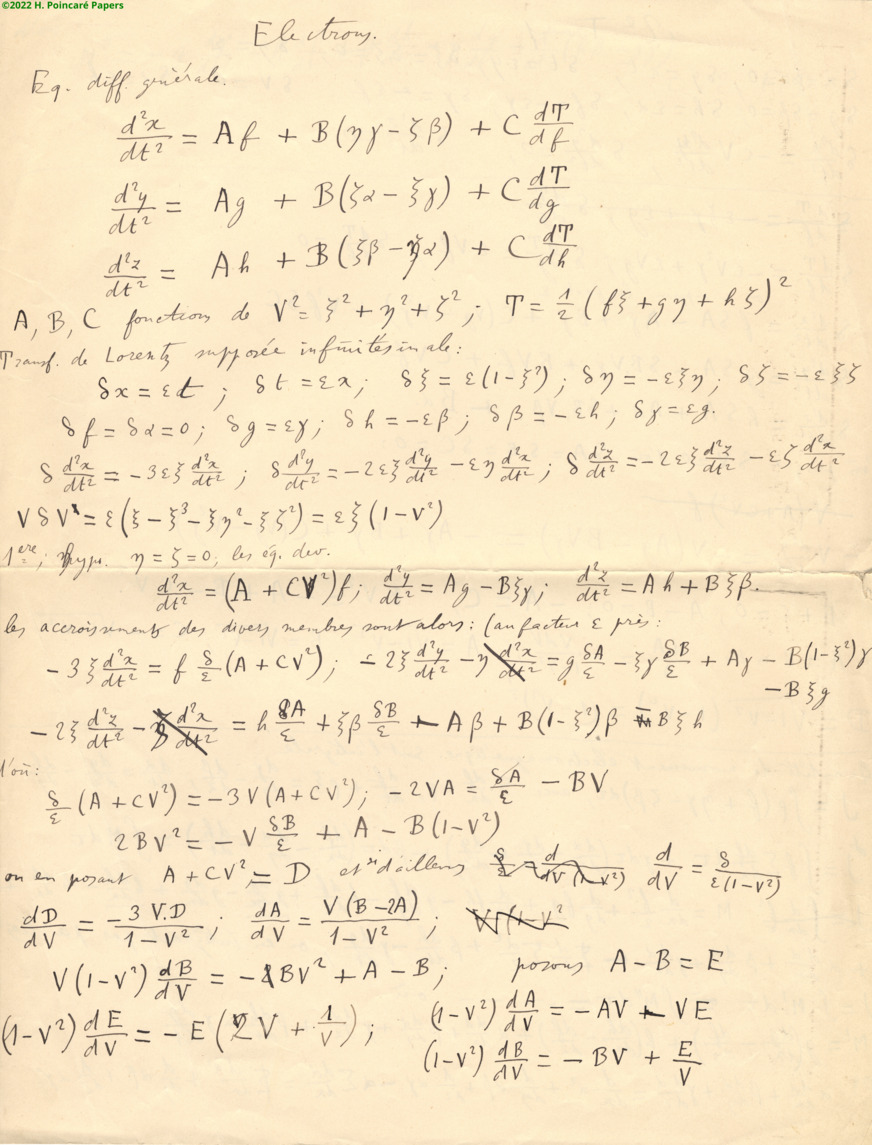 ©2022 H. Poincaré Papers
Electrons.
Eq. diff. générale.
d²x/dt² = Af + B(ηγ − ζβ) + C dT/df
d²y/dt² = Ag + B(ζα − ξγ) + C dT/dg
d²z/dt² = Ah + B(ξβ − ηα) + C dT/dh
A, B, C fonctions de V² = ξ² + η² + ζ² ; T = 1/2 (fξ + gη + hζ)²
Transf. de Lorentz supposée infinitésimale :
δx = εt ; δt = εx ; δξ = ε(1−ξ²) ; δη = −εξη ; δζ = −εξζ
δf = δα = 0 ; δg = εγ ; δh = −εβ ; δβ = −εh ; δγ = εg.
δ d²x/dt² = −3εξ d²x/dt² ; δ d²y/dt² = −2εξ d²y/dt² − εη d²x/dt² ; δ d²z/dt² = −2εξ d²z/dt² − εζ d²x/dt²
VδV = ε(ξ − ξ³ − ξη² − ξζ²) = εξ(1−V²)
1ère ; hyp. η = ζ = 0 ; les éq. dev.
d²x/dt² = (A + CV²)f ; d²y/dt² = Ag − Bξγ ; d²z/dt² = Ah + Bξβ.
les accroissements des divers membres sont alors : (au facteur ε près :
−3ξ d²x/dt² = f δ/ε (A + CV²) ; −2ξ d²y/dt² − η d²x/dt² = g δA/ε − ξγ δB/ε + Aγ − B(1−ξ²)γ
−Bξg
−2ξ d²z/dt² − ζ d²x/dt² = h δA/ε + ξβ δB/ε − Aβ + B(1−ξ²)β − Bξh
d'où :
δ/ε (A + CV²) = −3V(A + CV²) ; −2VA = δA/ε − BV
2BV² = −V δB/ε + A − B(1−V²)
ou en posant A + CV² = D et si d'ailleurs d/dV = δ/ε(1−V²)
dD/dV = −3V.D/1−V² ; dA/dV = V(B−2A)/1−V² ;
V(1−V²) dB/dV = −BV² + A − B ; posons A − B = E
(1−V²) dE/dV = −E(2V + 1/V) ; (1−V²) dA/dV = −AV − VE
(1−V²) dB/dV = −BV + E/V